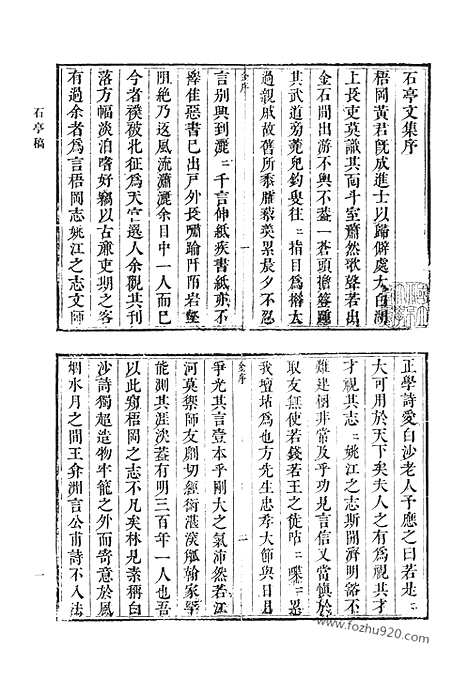 石亭文集序
梧岡黃君旣成進士以歸僻處大白湖
上長吏莫識其面斗室蕭然歌聲若出
金石間出游不輿不蓋一蒼頭擔簦隨
其武道旁蕘兒釣叟往〻指目爲褚太
過親戚故舊所黍臛藜羹累晨夕不忍
言別興到灑〻千言伸紙疾書紙亦不
擇佳惡書已出戶外長嘯踰阡陌岩壑
絕乃返風流瀟灑余目中一人而已
今者襆被北征爲天官選人余觀其刊
落方幅淡泊嗜好竊以古廉吏期之客
有過余者爲言梧岡志姚江之志文師
全序
一
正學詩愛白沙老人予應之曰若是〻
大可用於天下矣夫人之有爲視其才
才視其志〻姚江之志斯開濟明豁不
難建樹非常及乎功見言信又當愼於
取友無使若錢若王之徒呫〻喋〻累
我壇坫爲也方先生忠孝大節與日月
爭光其言壹本乎剛大之氣沛然若江
河莫禦師友剴切經術湛深觚翰家罕
能測其涯涘蓋有明三百年一人也吾
以此窺梧岡之志不凡矣林見素稱白
沙詩獨超造物牢籠之外而寄意於風
烟水月之間王弇洲言公甫詩不入法
全序
二
石亭稿
一
www.fozhu920.com